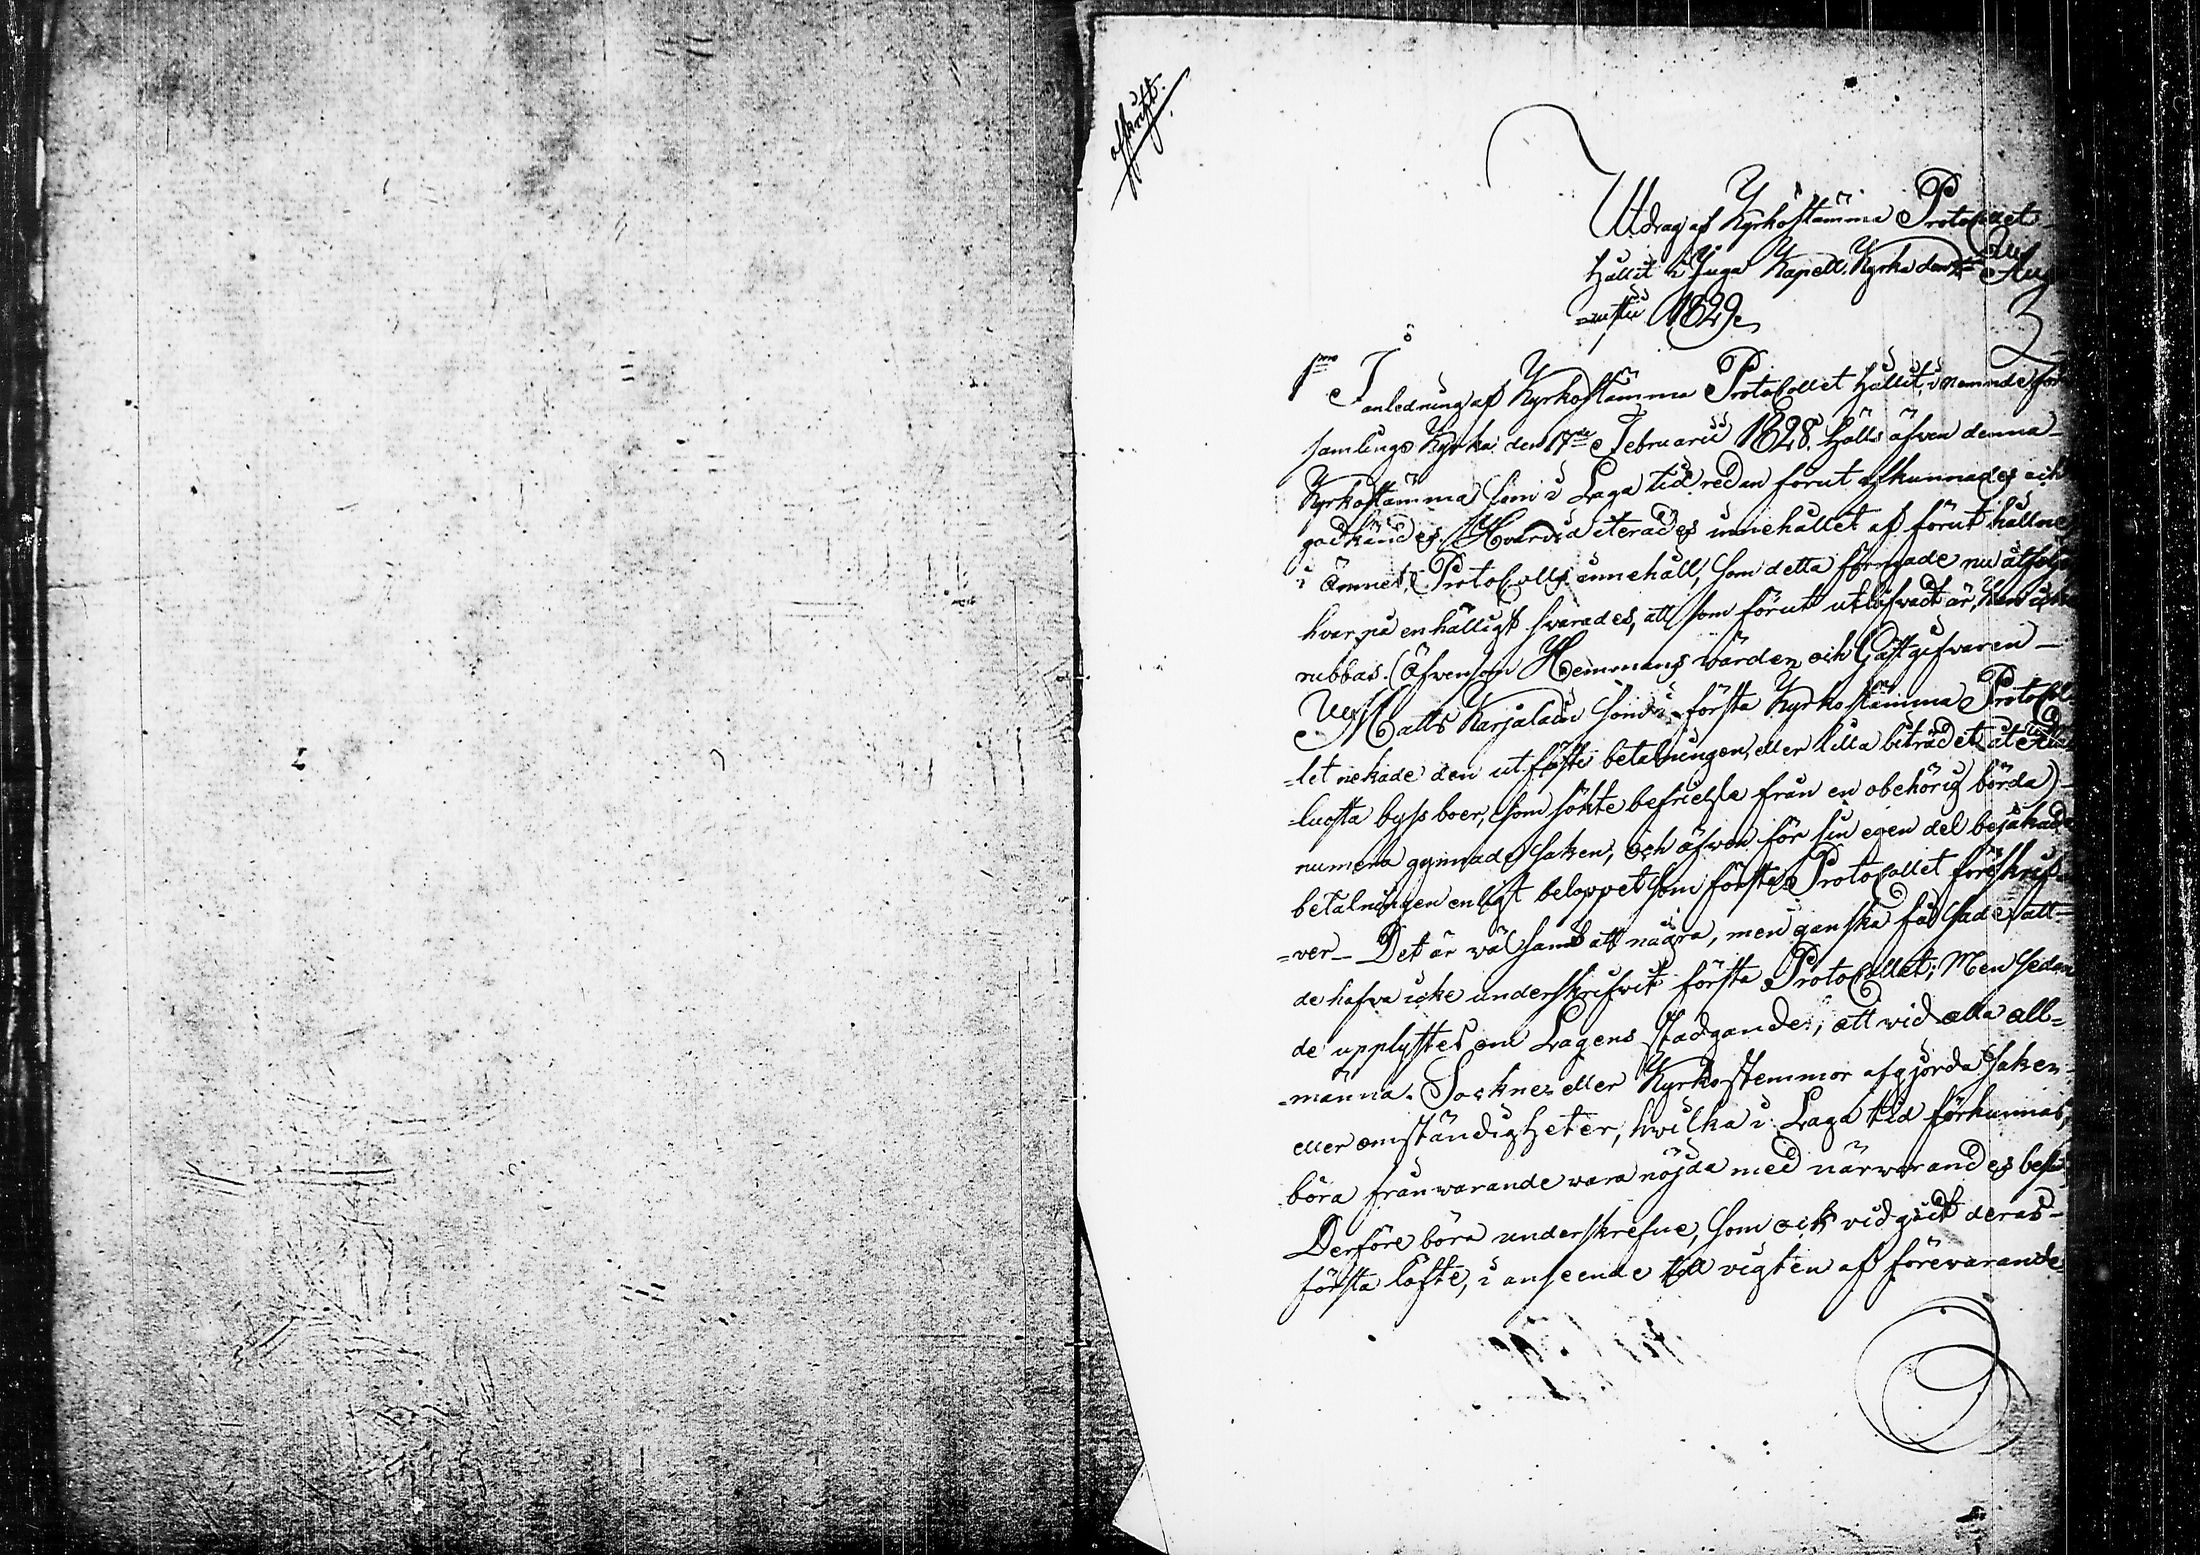 afskrift.
Utdrag af Kyrkostämma Protocollet
hållit i Inga Kapell Kyrka den Aug
=usti 1829.
1mo I anledning af Kyrkostämma Protocollet hållit, i nämnde för
samlings Kyrka den 17de Februarii 1828. hölls äfven denna
Kyrkostämma som i Laga tid redan förut afkunnades och
godkändes. Hvarvid iterades innehållet af förut hållne
i ämnet, Protocolls innehåll, som detta förmade nu åtfölja
hvarpå enhälligt svarades, att som förut utlofvadt är, kan icke
rubbas. (Äfvensom Hemmans värden och Gästgifvaren
Matts Karjalain som i första Kyrkostämma Protocol-
=let nekade den utfäste betalningen, eller lilla biträdet åt
=luosta bys boer, som sökte befrielse från en obehörig börda)
numera gynnade saken, och äfven för sin egen del bejakade
betalningen enligt beloppet som första Protocollet föreskrif
=ver_ Det är väl sant att några, men ganska få sade, att
de hafva icke underskrifvit första Protocollet; Men sedan
de upplystes om Lagens stadgande, att vid alla all=
=männa Sockne eller Kyrkostemmor afgjorda saker
eller omständigheter, hvilka i Laga tid förkunnas,
böra frånvarande vara nöjda med närvarandes beslut
Derföre böra underskrefne, som ock vidgådt deras
första löfte, i anseende till vigten af förevarande